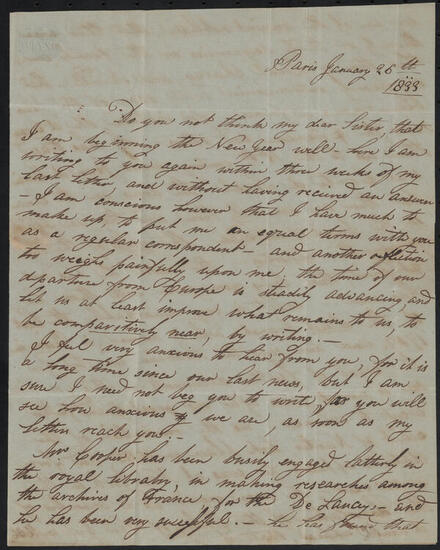 Paris January 26th
1833
Do you not think my dear Sister, that
I am beginning the New Year well - here I am
writing to you again within three weeks of my
last letter, and without having recieved an answer
- I am conscious however that I have much to
make up, to put me on equal terms with you
as a regular correspondent - and another reflection
too weighs painfully upon me, the time of our
departure from Europe is steadily advancing, and
let us at least improve what remains to us, to
be comparitively near, by writing. -
I feel very anxious to hear from you, for it is
a long time since our last news, but I am
sure I need not beg you to write, for you will
see how anxious we are, as soon as my
letters reach you. -
Mr Cooper has been busily engaged latterly in
the royal library, in making researches among
the archives of France for the De Lancey's - and
he has been very successful. - he has found that